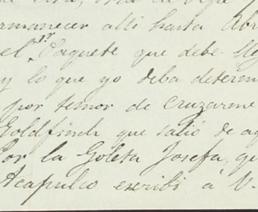 permanecer alli hasta Abr
el 1er Paquete que debe lleg
y lo que yo deba determi
por temor de cruzarme
Goldfinch que salio de aq
Por la Goleta Josefa, qu
Acapulco escribi á V.